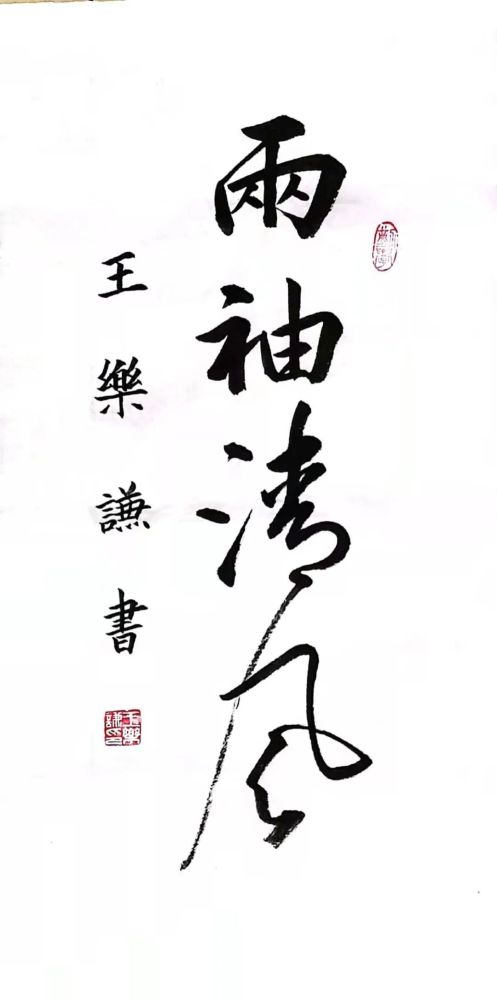 兩袖清風
王樂謙書
王樂謙印